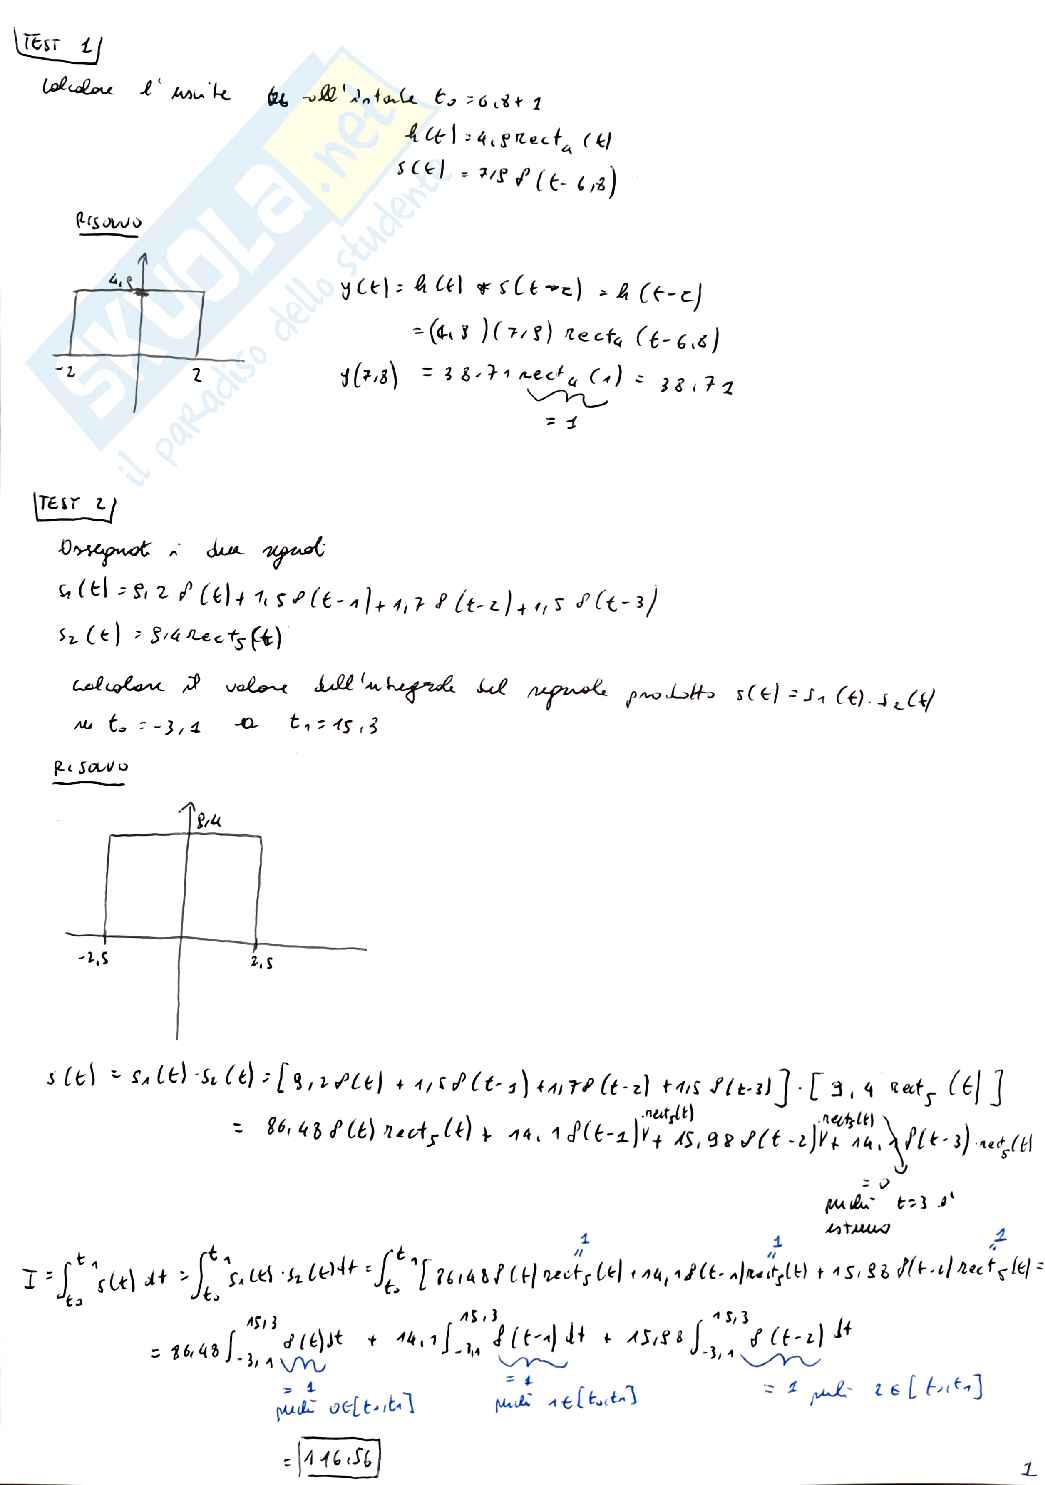 TEST 1
Calcolare l'uscita all'istante t₀ = 6,8 + 1
h(t) = 4,9 rect₄ (t)
s(t) = 7,9 δ(t - 6,8)
RISOLVO
4,9
-2 2
y(t) = h(t) * s(t-τ) = h(t-τ)
= (4,9)(7,9) rect₄ (t-6,8)
y(7,8) = 38.71 rect₄ (1) = 38.71
= 1
TEST 2
Assegnati i due segnali
s₁(t) = 9,2 δ(t) + 1,5 δ(t-1) + 1,7 δ(t-2) + 1,5 δ(t-3)
s₂(t) = 9,4 rect₅(t)
calcolare il valore dell'integrale del segnale prodotto s(t) = s₁(t)·s₂(t)
t₀ = -3,1 a t₁ = 15,3
RISOLVO
9,4
-2,5 2,5
s(t) = s₁(t)·s₂(t) = [9,2 δ(t) + 1,5 δ(t-1) + 1,7 δ(t-2) + 1,5 δ(t-3)]·[9,4 rect₅(t)]
= 86,48 δ(t) rect₅(t) + 14,1 δ(t-1)·rect₅(t) + 15,98 δ(t-2)·rect₅(t) + 14,1 δ(t-3)·rect₅(t)
= 0
perché t=3 è
esterno
1 1 1
I = ∫_{t₀}^{t₁} s(t) dt = ∫_{t₀}^{t₁} s₁(t)·s₂(t) dt = ∫_{t₀}^{t₁} [86,48 δ(t) rect₅(t) + 14,1 δ(t-1) rect₅(t) + 15,98 δ(t-2) rect₅(t) =
= 86,48 ∫_{-3,1}^{15,3} δ(t) dt + 14,1 ∫_{-3,1}^{15,3} δ(t-1) dt + 15,98 ∫_{-3,1}^{15,3} δ(t-2) dt
= 1 perché 0∈[t₀,t₁]
= 1 perché 1∈[t₀,t₁]
= 1 perché 2∈[t₀,t₁]
= 116.56
1
SKUOLA.net
il paradiso dello studente